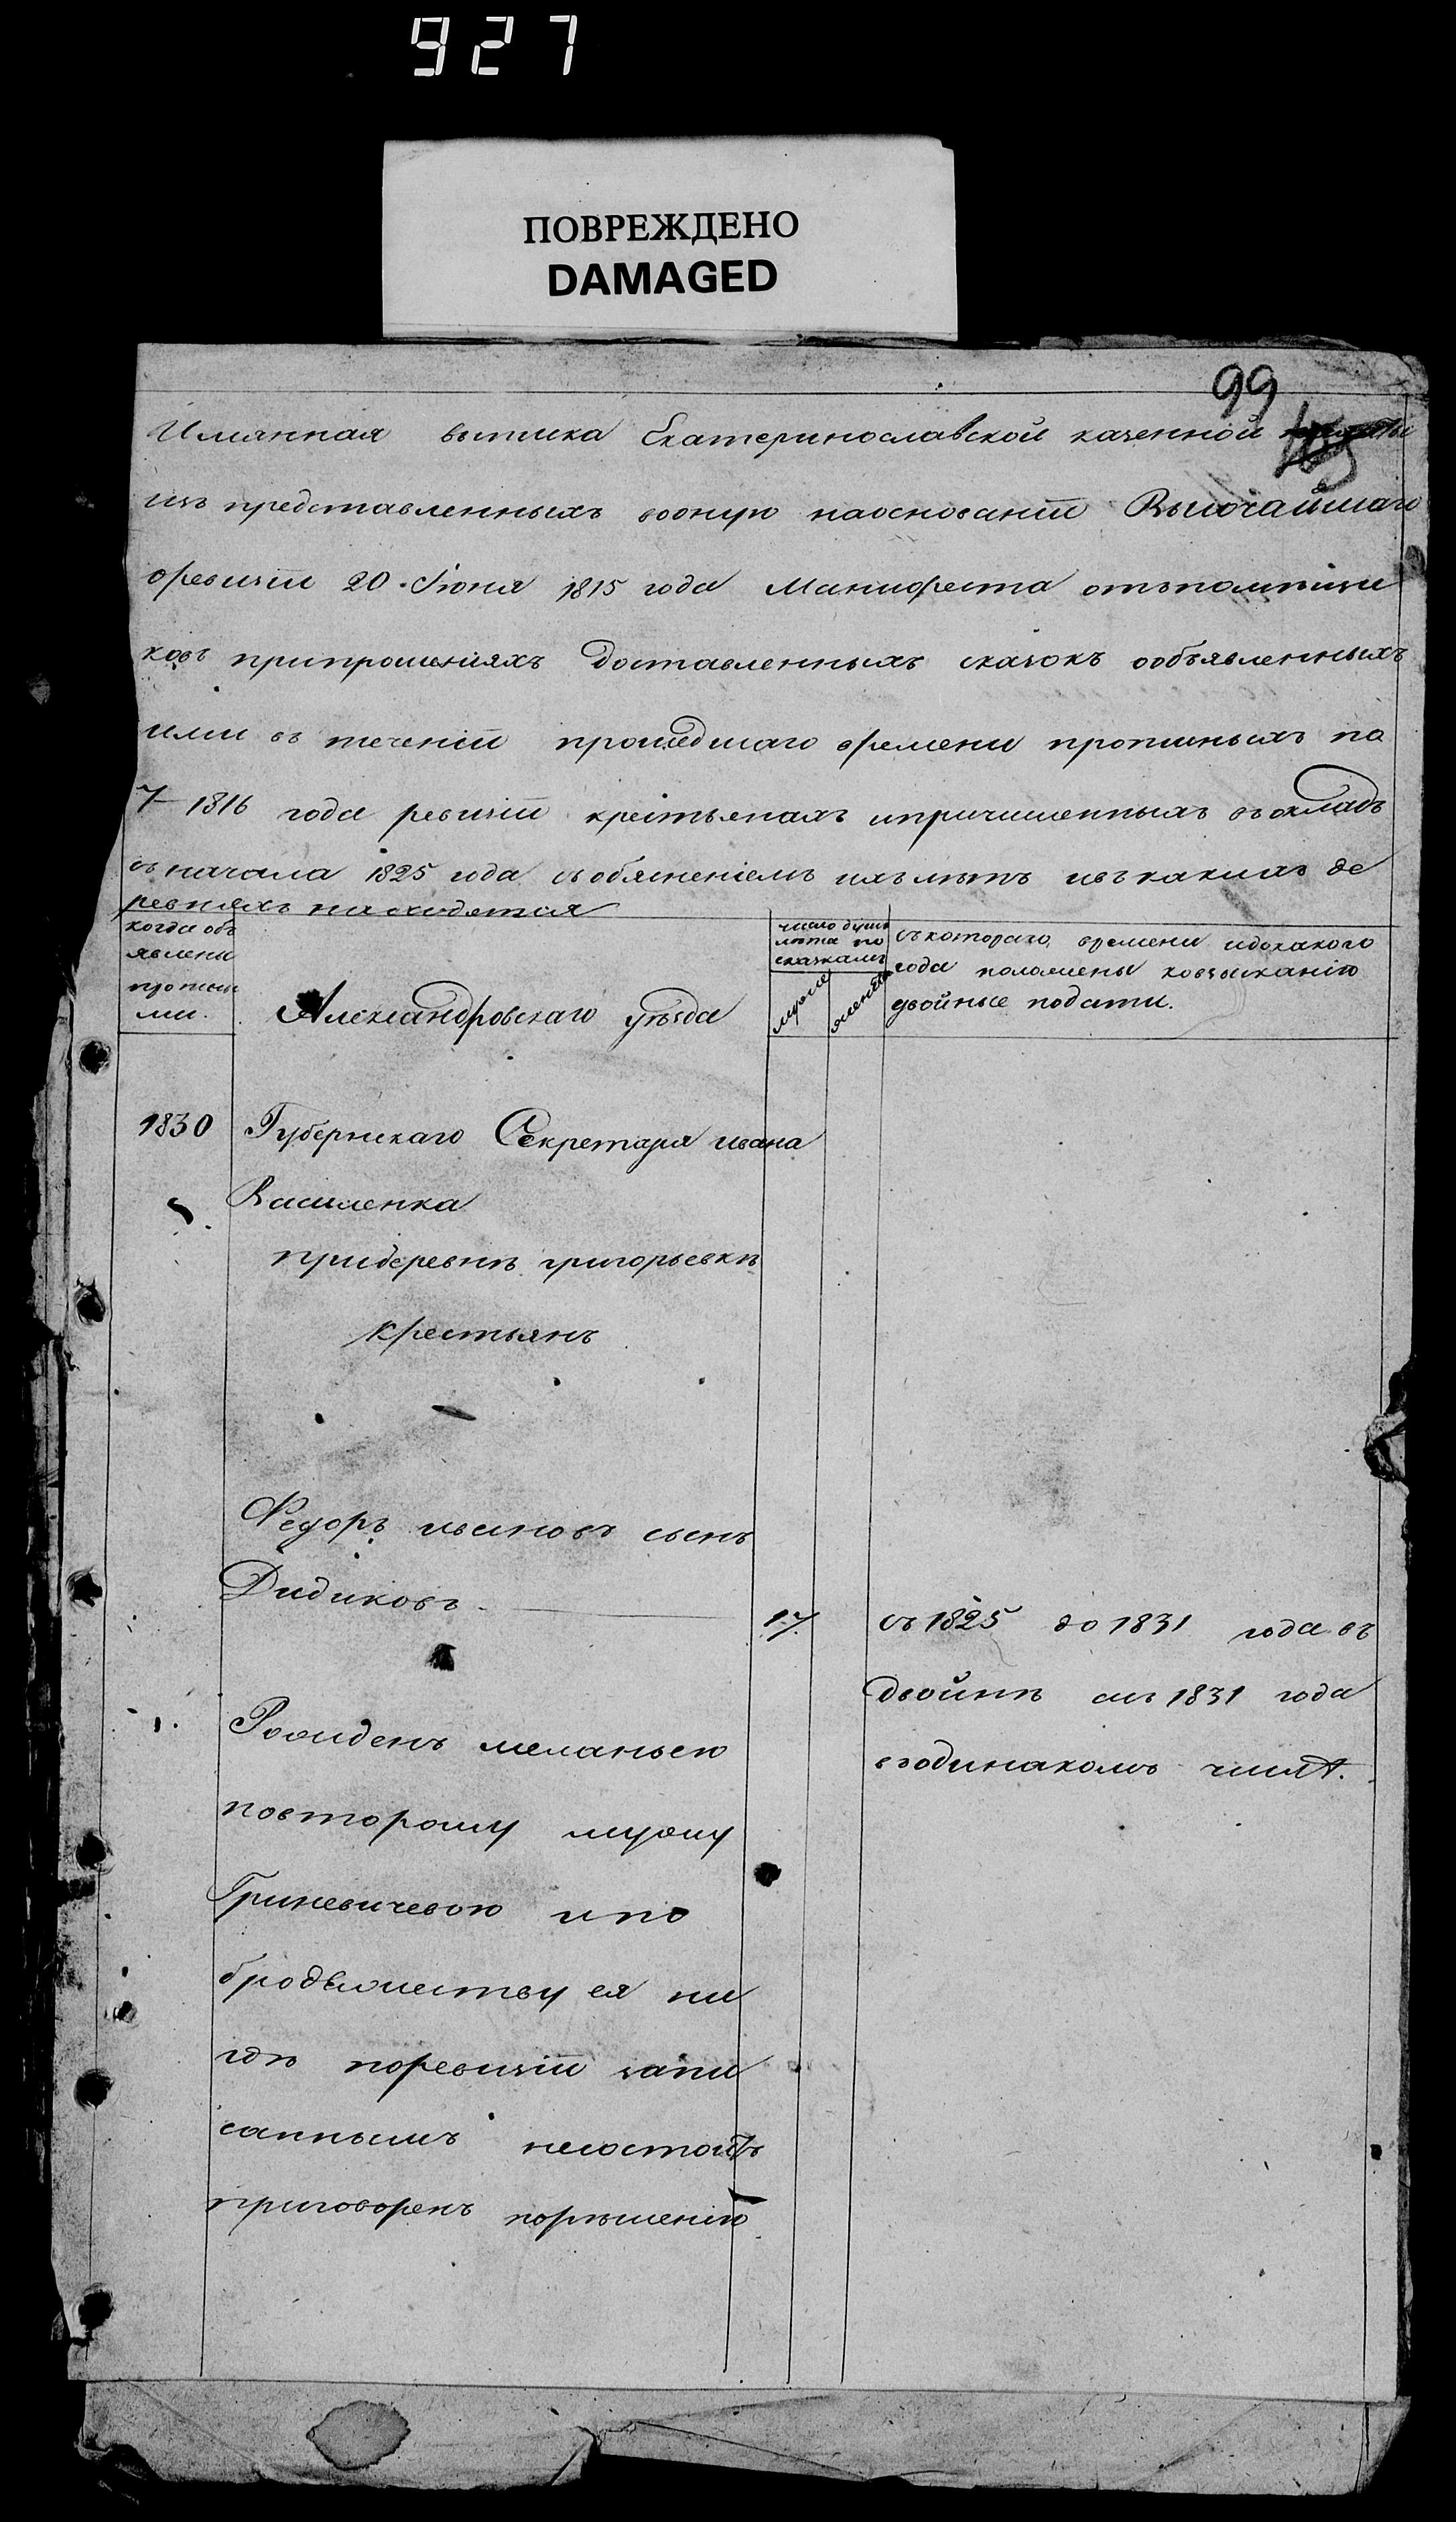 927
ПОВРЕЖДЕНО
DAMAGED
99
Имянная выписка Екатеринославской казенной палаты
изъ представленныхъ вооную наосновании Высочайшаго
оревизіи 20 Іюня 1815 года Манифеста отъпомѣщи
ковъ припрошеніяхъ доставленныхъ сказокъ ообъявленныхъ
ими въ теченіи прошедшаго времени прописныхъ по
7 1816 года ревизіи крестьенахъ ипричисленныхъ въокладъ
съ начала 1825 года собясненіемъ ихъ лѣтъ ивъ какихъ де
ревняхъ находятся
когда объ
явлены
прописн
ми.
Александровскаго уѣзда
число душъ
лѣта по
сказкамъ
муже
женск
съ котораго времени идокакого
года положены ковзысканію
двойные подати.
1830 Губернскаго Секретаря ивана
Василенка
придеревнѣ григорьевкѣ
крестьянъ
Федоръ ивановъ сынъ
Дидиковъ
17
съ 1825 до 1831 года въ
двойнѣ асъ 1831 года
водинакомъ числѣ.
1.
Рожденъ меланьею
повторому мужу
Гриневичевою ипо
бродяжеству ея ни
гдѣ поревизіи запи
саннымъ несостоитъ
приговоренъ порѣшенію